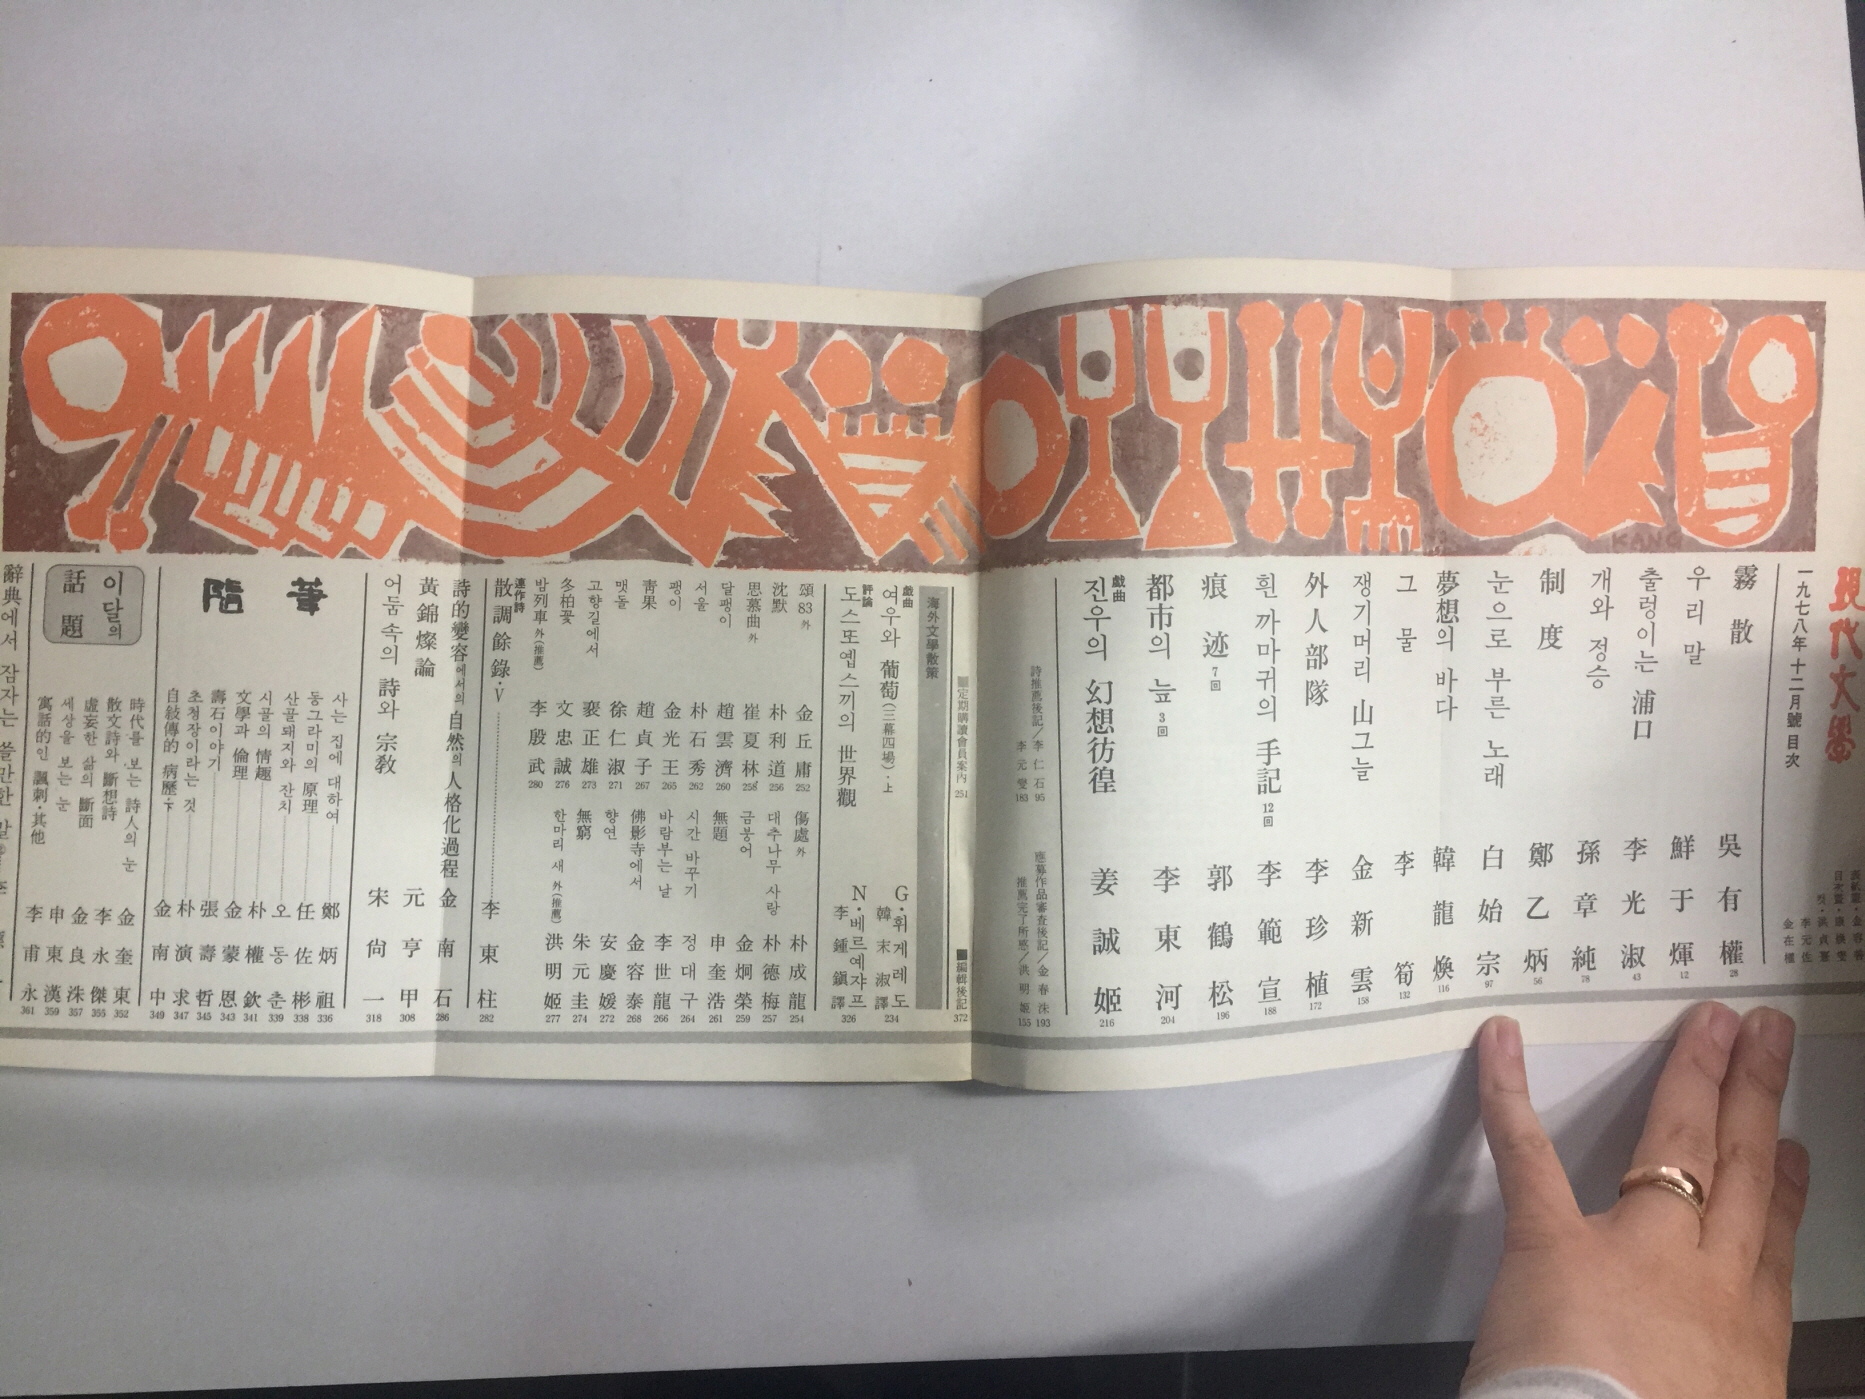 現代文學
一九七八年 十二月號 目次
霧散 吳有權 28
우리 말 鮮于煇 12
출렁이는 浦口 李光淑 43
개와 정승 孫章純 78
制度 鄭乙炳 56
눈으로 부른 노래 白始宗 97
夢想의 바다 韓龍煥 116
그물 李筍 132
쟁기머리 山그늘 金新雲 158
外人部隊 李珍植 172
흰 까마귀의 手記 12回 李範宣 188
痕迹 7回 郭鶴松 196
都市의 늪 3回 李東河 204
戱曲
진우의 幻想彷徨 姜誠姬 216
詩推薦後記/李仁石 95
李元燮 183
應募作品審査後記/金春洙 193
推薦完了所感/洪明姬 155
■定期購讀會員案內 251
■編輯後記 372
海外文學散策
戱曲
여우와 葡萄(三幕四場)·上 G·휘게레도 韓末淑 譯 234
評論
도스또옙스끼의 世界觀 N·베르예쟈프 李鍾鎭 譯 326
頌 83 外 金丘庸 252
傷處 外 朴成龍 254
沈默 朴利道 256
대추나무 사랑 朴德梅 257
思慕曲 外 崔夏林 258
금붕어 金炯榮 259
달팽이 趙雲濟 260
無題 申奎浩 261
서울 朴石秀 262
시간 바꾸기 정대구 264
팽이 金光王 265
바람부는 날 李世龍 266
靑果 趙貞子 267
佛影寺에서 金容泰 268
맷돌 徐仁淑 271
향연 安慶媛 272
고향길에서 裵正雄 273
無窮 朱元圭 274
冬柏꽃 文忠誠 276
한마리 새 外(推薦) 洪明姬 277
밤列車 外(推薦) 李殷武 280
連作詩
散調餘錄·V 李東柱 282
詩的變容에서의 自然의 人格化過程 金南石 286
黃錦燦論 元亨甲 308
어둠 속의 詩와 宗敎 宋尙一 318
隨筆
사는 집에 대하여 鄭炳祖 336
동그라미의 原理 任佐彬 338
산골돼지와 잔치 오동춘 339
시골의 情趣 朴權欽 341
文學과 倫理 金蒙恩 343
壽石이야기 張壽哲 345
초청장이라는 것 朴演求 347
自敍傳的 病歷·下 金南中 349
이달의 話題
時代를 보는 詩人의 눈 金奎東 352
散文詩와 斷想詩 李永傑 355
虛妄한 삶의 斷面 金良洙 357
세상을 보는 눈 申東漢 359
寓話的인 諷刺·其他 李甫永 361
辭典에서 잠자는 쓸만한 말
KANG